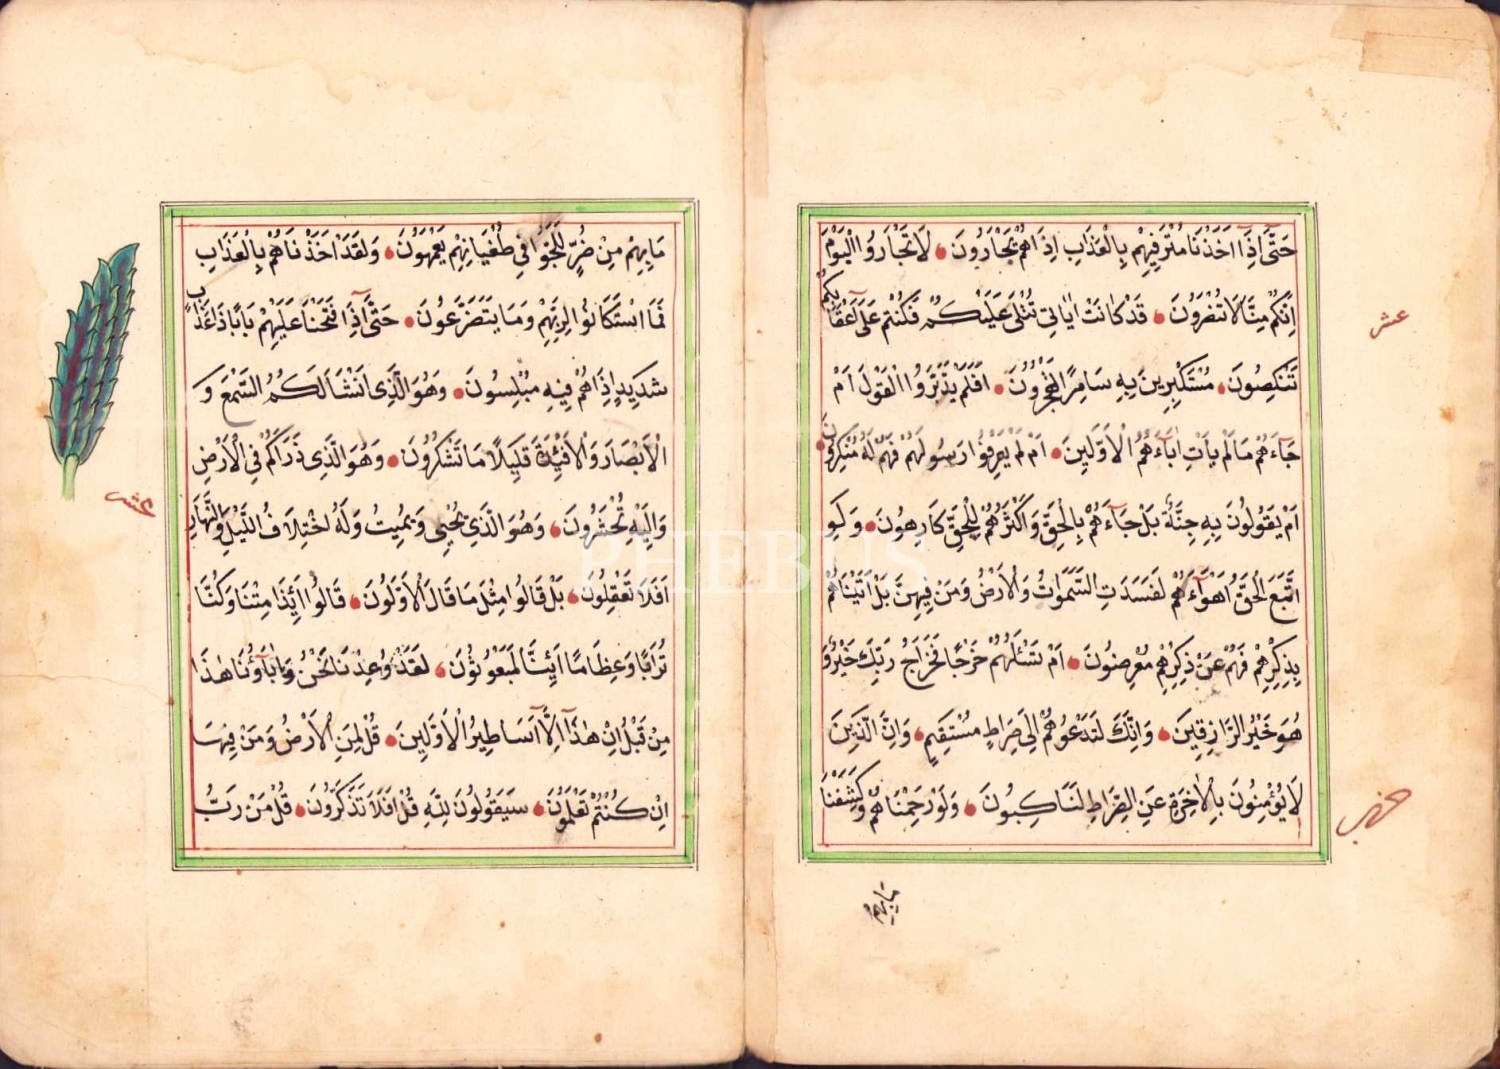 حَتَّىٰٓ اِذَٓا اَخَذْنَا مُتْرَفِيهِمْ بِالْعَذَابِ اِذَا هُمْ يَجْاَرُونَ لَا تَجْاَرُوا الْيَوْمَ
اِنَّكُمْ مِنَّا لَا تُنْصَرُونَ قَدْ كَانَتْ اٰيَاتِي تُتْلٰى عَلَيْكُمْ فَكُنْتُمْ عَلٰٓى اَعْقَابِكُمْ
تَنْكِصُونَ مُسْتَكْبِرِينَ بِهِ سَامِرًا تَهْجُرُونَ اَفَلَمْ يَدَّبَّرُوا الْقَوْلَ اَمْ
جَآءَهُمْ مَا لَمْ يَأْتِ اٰبَآءَهُمُ الْاَوَّلِينَ اَمْ لَمْ يَعْرِفُوا رَسُولَهُمْ فَهُمْ لَهُ مُنْكِرُونَ
اَمْ يَقُولُونَ بِهِ جِنَّةٌ بَلْ جَآءَهُمْ بِالْحَقِّ وَاَكْثَرُهُمْ لِلْحَقِّ كَارِهُونَ وَلَوِ
اتَّبَعَ الْحَقُّ اَهْوَآءَهُمْ لَفَسَدَتِ السَّمٰوَاتُ وَالْاَرْضُ وَمَنْ فِيهِنَّ بَلْ اَتَيْنَاهُمْ
بِذِكْرِهِمْ فَهُمْ عَنْ ذِكْرِهِمْ مُعْرِضُونَ اَمْ تَسْئَلُهُمْ خَرْجًا فَخَرَاجُ رَبِّكَ خَيْرٌ وَ
هُوَ خَيْرُ الرَّازِقِينَ وَاِنَّكَ لَتَدْعُوهُمْ اِلٰى صِرَاطٍ مُسْتَقِيمٍ وَاِنَّ الَّذِينَ
لَا يُؤْمِنُونَ بِالْاٰخِرَةِ عَنِ الصِّرَاطِ لَنَاكِبُونَ وَلَوْ رَحِمْنَاهُمْ وَكَشَفْنَا
مَابِهِمْ
عشر
حزب
مَا بِهِمْ مِنْ ضُرٍّ لَلَجُّوا فِي طُغْيَانِهِمْ يَعْمَهُونَ وَلَقَدْ اَخَذْنَاهُمْ بِالْعَذَابِ
فَمَا اسْتَكَانُوا لِرَبِّهِمْ وَمَا يَتَضَرَّعُونَ حَتَّىٰٓ اِذَا فَتَحْنَا عَلَيْهِمْ بَابًا ذَا عَذَابٍ
شَدِيدٍ اِذَا هُمْ فِيهِ مُبْلِسُونَ وَهُوَ الَّذِي اَنْشَاَ لَكُمُ السَّمْعَ وَ
الْاَبْصَارَ وَالْاَفْئِدَةَ قَلِيلًا مَا تَشْكُرُونَ وَهُوَ الَّذِي ذَرَاَكُمْ فِي الْاَرْضِ
وَاِلَيْهِ تُحْشَرُونَ وَهُوَ الَّذِي يُحْيِي وَيُمِيتُ وَلَهُ اخْتِلَافُ اللَّيْلِ وَالنَّهَارِ
اَفَلَا تَعْقِلُونَ بَلْ قَالُوا مِثْلَ مَا قَالَ الْاَوَّلُونَ قَالُوا اَئِذَا مِتْنَا وَكُنَّا
تُرَابًا وَعِظَامًا اَئِنَّا لَمَبْعُوثُونَ لَقَدْ وُعِدْنَا نَحْنُ وَاٰبَآؤُنَا هٰذَا
مِنْ قَبْلُ اِنْ هٰذَٓا اِلَّٓا اَسَاطِيرُ الْاَوَّلِينَ قُلْ لِمَنِ الْاَرْضُ وَمَنْ فِيهَا
اِنْ كُنْتُمْ تَعْلَمُونَ سَيَقُولُونَ لِلّٰهِ قُلْ اَفَلَا تَذَكَّرُونَ قُلْ مَنْ رَبُّ
PHEBUS